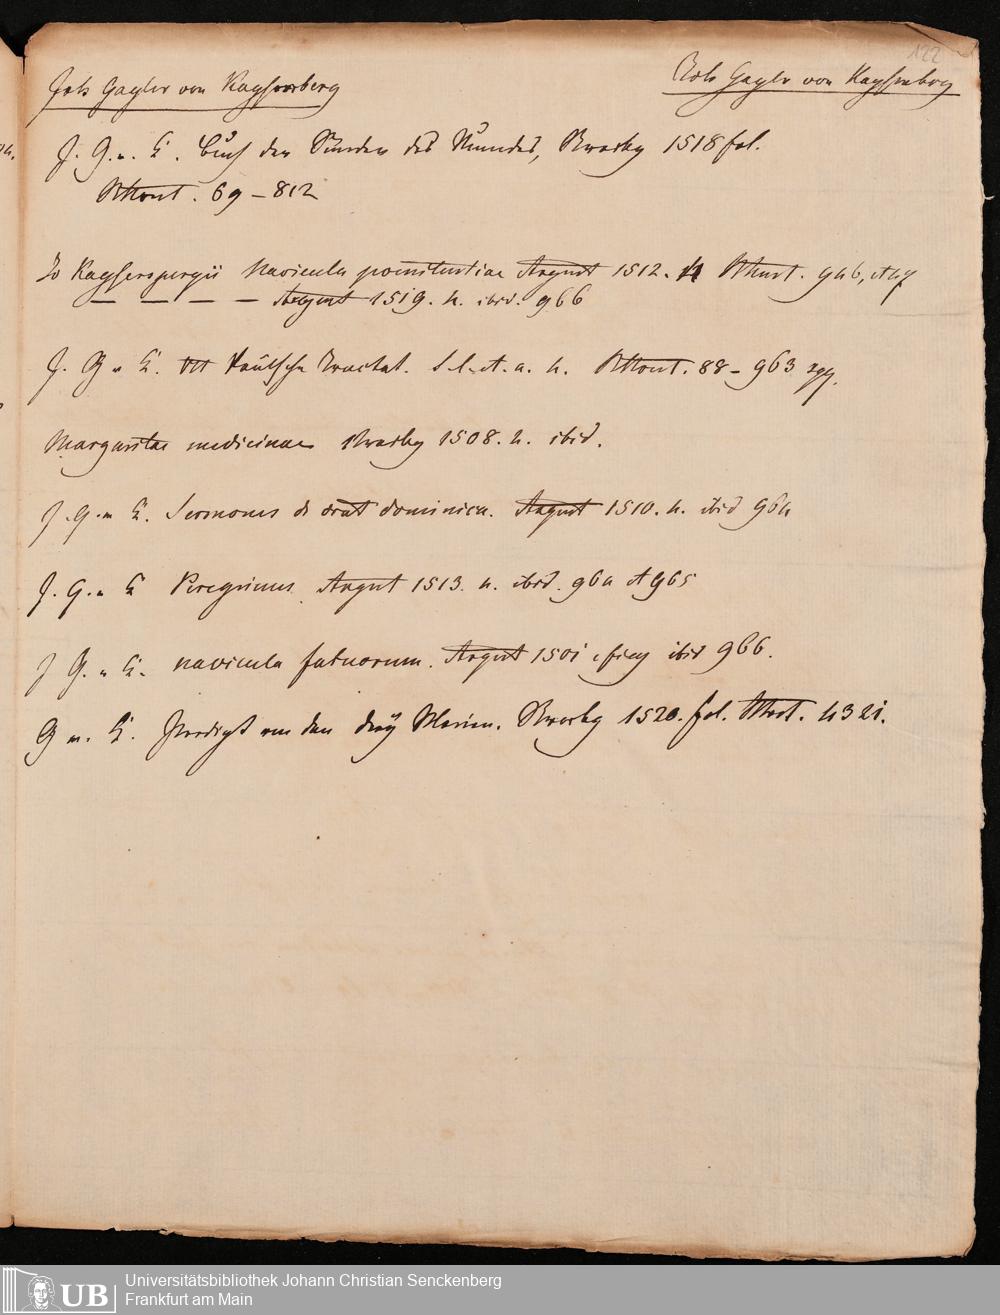 122
Joh Gayler von Kaysersberg
Joh Gayler von Kaysersberg
J. G. v. K. Buch der Sünden des Mundes, 1518 fol.
69 – 812
Jo Kayserspergii Navicula poenitentiae August 1512. 4
— — — — August 1519. 4. ibid. 966
J. G v K. Tractat. s. l. et. a. 4. 88 – 963 sqq.
Margaritae medicinae 1508. 4. ibid.
J. G. v K. Sermones de orat dominica. August 1510. 4. ibid 964
J. G. v K Peregrinus August 1513. 4. ibid. 964 et 965
J G. v K. navicula fatuorum. August 1501 ibid 966.
G v. K. Predigt von den drey Marien. 1520. fol. 4321.
Universitätsbibliothek Johann Christian Senckenberg
Frankfurt am Main
UB